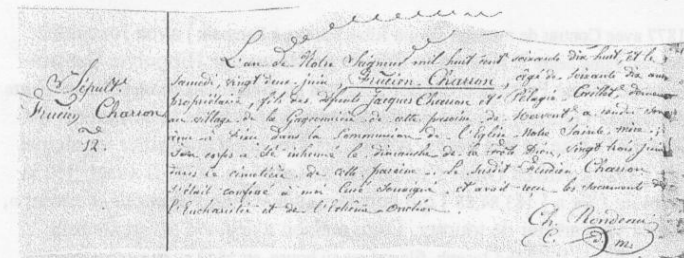 Sépult.
de
Charson
12.
L'an de Notre Seigneur mil huit cent soixante dix huit, et le
Samedi, vingt deux juin, Charson, âgé de soixante dix ans
propriétaire, fils des défunts Jacques Charson et Pélagie
au village de la de cette paroisse de a rendu son
âme à Dieu dans la Communion de l'Eglise Notre Sainte mère;
son corps a été inhumé le dimanche de la Fête Dieu, vingt trois juin
dans le cimetière de cette paroisse. Le susdit Charson
s'était confessé à moi Curé soussigné et avait reçu les sacrements de
l'Eucharistie et de l'Extrême-Onction.
Ch. Rondeau
C.